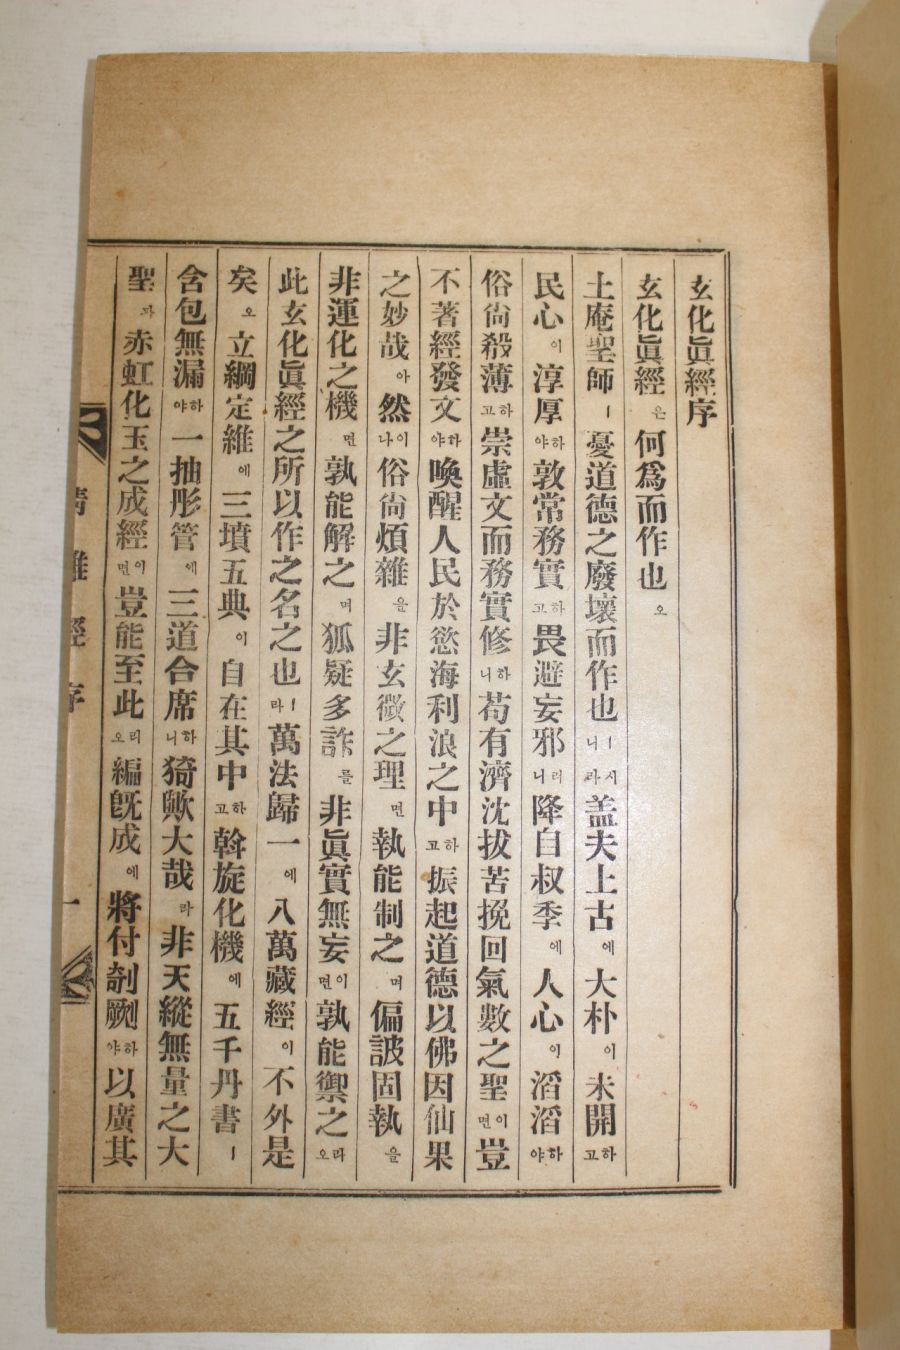 玄化眞經序
玄化眞經은何爲而作也오
土庵聖師ㅣ憂道德之廢壞而作也ㅣ시니라盖夫上古에大朴이未開하고
民心이淳厚하야敦常務實하고畏避妄邪리니降自叔季에人心이滔滔하야
俗尙殺薄하고崇虛文而務實修하니苟有濟沈拔苦挽回氣數之聖이면豈
不著經發文하야喚醒人民於慾海利浪之中하고振起道德以佛因仙果
之妙哉아然이나俗尙煩雜을非玄微之理면孰能制之며偏詖固執을
非運化之機면孰能解之며狐疑多詐를非眞實無妄이면孰能禦之리오
此玄化眞經之所以作之名之也ㅣ라萬法歸一에八萬藏經이不外是
矣오立綱定維에三墳五典이自在其中하고斡旋化機에五千丹書ㅣ
含包無漏하야一抽彤管에三道合席하니猗歟大哉라非天縱無量之大
聖과赤虹化玉之成經이면豈能至此리오編旣成에將付剞劂하야以廣其
經序 一